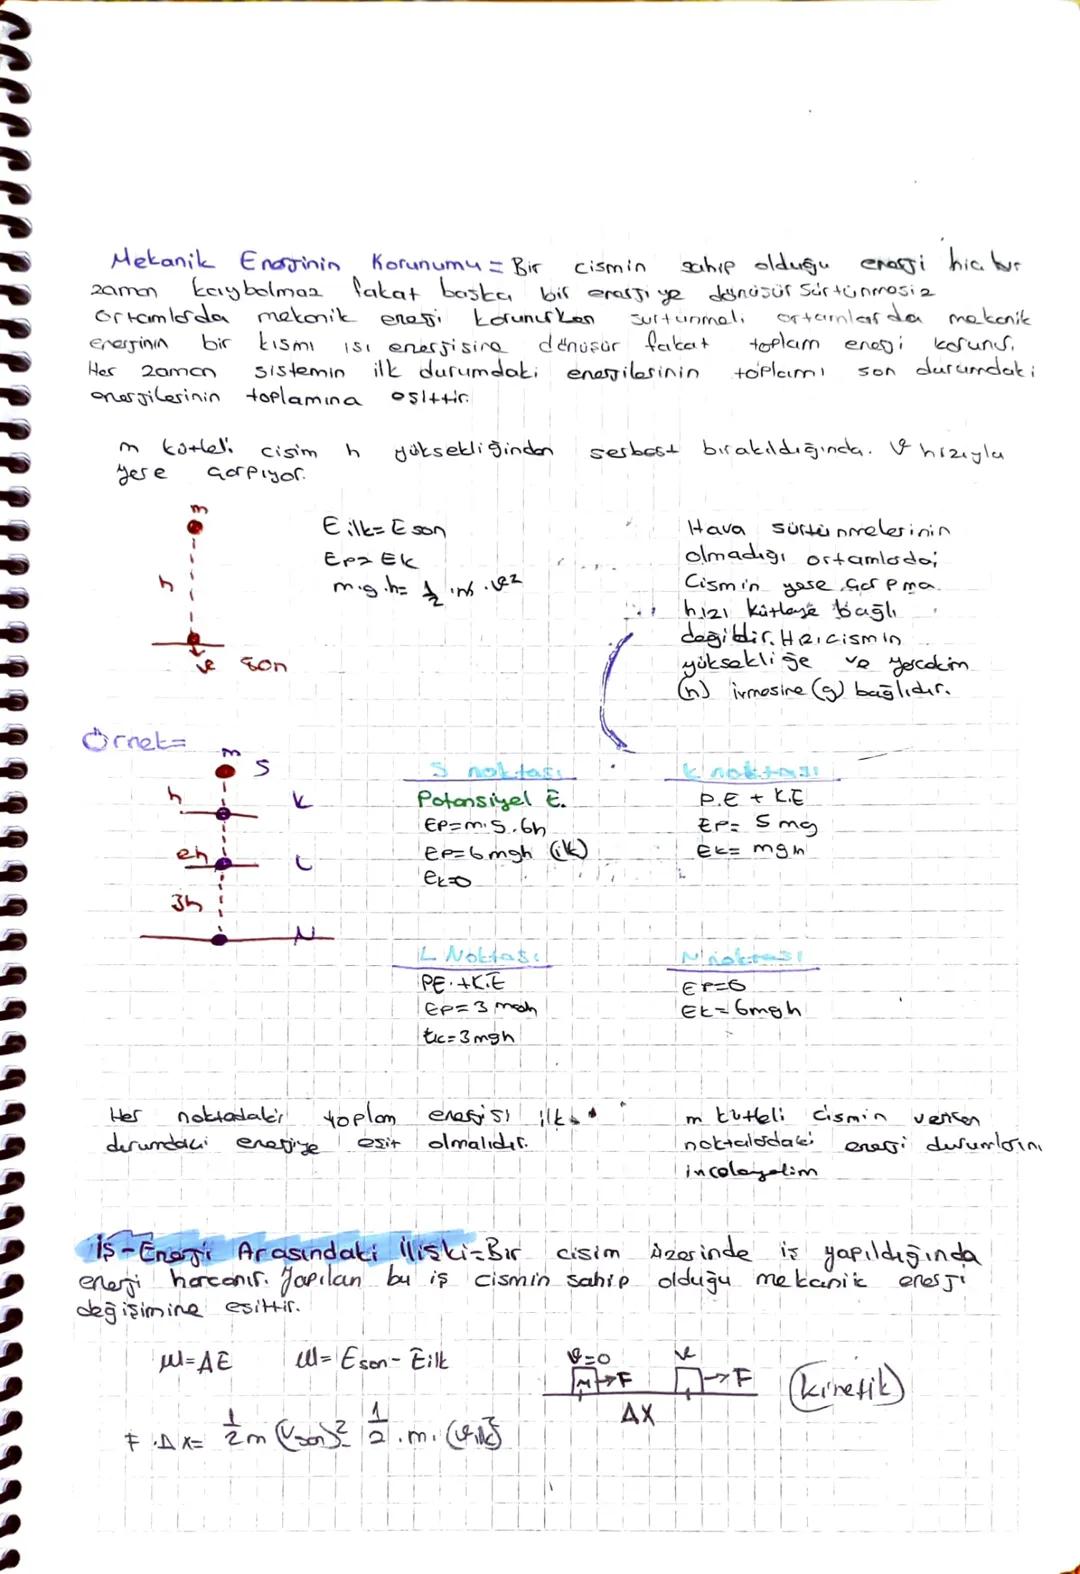 Mekanik Enerjinin Korunumu = Bir cismin sahip olduğu enerji hiç bir
zaman kaybolmaz fakat başka bir enerjiye dönüşür Sürtünmesiz
ortamlarda mekanik enerji korunurken sürtünmeli ortamlarda mekanik
enerjinin bir kısmı ısı enerjisine dönüşür fakat toplam enerji korunur.
Her zaman sistemin ilk durumdaki enerjilerinin toplamı son durumdaki
enerjilerinin toplamına eşittir.
m kütleli cisim h yüksekliğinden serbest bırakıldığında. v hızıyla
yere çarpıyor.
m
h
v son
E ilk = E son
Ep = Ek
m.g.h = 1/2 .m.v²
Hava sürtünmelerinin
olmadığı ortamlarda;
Cismin yere çarpma
hızı kütleye bağlı
değildir. Hızı cismin
yüksekliğe ve yerçekim
(h) ivmesine (g) bağlıdır.
Örnek=
m S
h K
2h L
3h
N
S noktası
Potansiyel E.
Ep=m.g.6h
Ep=6mgh (ilk)
Ek=0
K noktası
P.E + K.E
Ep= 5mg
Ek= mgh
L Noktası
PE.+K.E
Ep=3mgh
Ek=3mgh
N noktası
Ep=0
Ek=6mgh
Her noktadaki toplam enerjisi ilk
durumdaki enerjiye eşit olmalıdır.
m kütleli cismin verilen
noktalardaki enerji durumlarını
inceleyelim
İş-Enerji Arasındaki İlişki=Bir cisim üzerinde iş yapıldığında
enerji harcanır. Yapılan bu iş cismin sahip olduğu mekanik enerji
değişimine eşittir.
W=ΔE W= Eson - Eilk
v=0 v
M→F →F
Δx
(kinetik)
F.Δx= 1/2 m (vson)² - 1/2 .m.(vilk)²